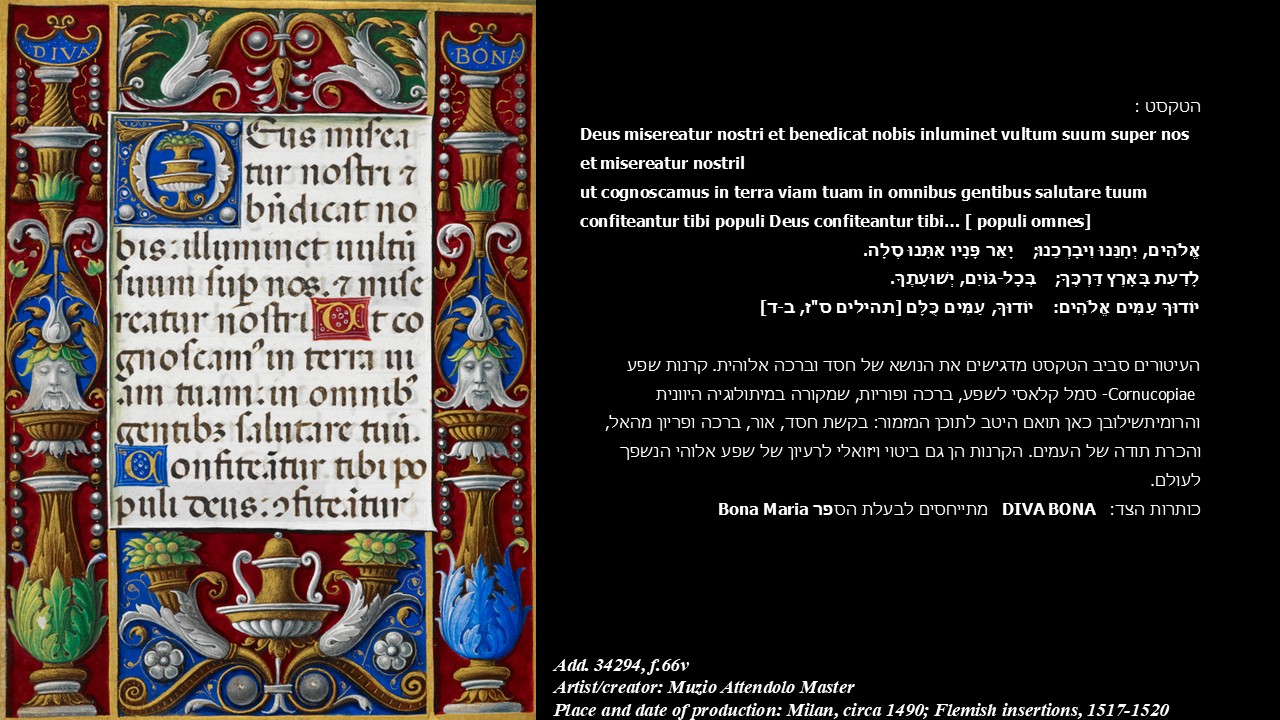 DIVA
BONA
Eus misea
tur nostri ⁊
bn̄dicat no
bis: illuminet uultū
suum sup̱ nos. ⁊ mise
reatur nostri. Et co
gnoscamꝰ in terra ui
am tuam: in omnibꝰ
gentibꝫ salutare tuū.
Confiteãtur tibi po
puli deus: ꝯfiteãtur
הטקסט :
Deus misereatur nostri et benedicat nobis inluminet vultum suum super nos
et misereatur nostril
ut cognoscamus in terra viam tuam in omnibus gentibus salutare tuum
confiteantur tibi populi Deus confiteantur tibi... [ populi omnes]
אֱלֹהִים, יְחָנֵּנוּ וִיבָרְכֵנוּ; יָאֵר פָּנָיו אִתָּנוּ סֶלָה.
לָדַעַת בָּאָרֶץ דַּרְכֶּךָ; בְּכָל-גּוֹיִם, יְשׁוּעָתֶךָ.
יוֹדוּךָ עַמִּים אֱלֹהִים: יוֹדוּךָ, עַמִּים כֻּלָּם [תהילים ס"ז, ב-ד]
העיטורים סביב הטקסט מדגישים את הנושא של חסד וברכה אלוהית. קרנות שפע
Cornucopiae- סמל קלאסי לשפע, ברכה ופוריות, שמקורה במיתולוגיה היוונית
והרומיתשילובן כאן תואם היטב לתוכן המזמור: בקשת חסד, אור, ברכה ופריון מהאל,
והכרת תודה של העמים. הקרנות הן גם ביטוי ויזואלי לרעיון של שפע אלוהי הנשפך
לעולם.
כותרות הצד: DIVA BONA מתייחסים לבעלת הספר Bona Maria
Add. 34294, f.66v
Artist/creator: Muzio Attendolo Master
Place and date of production: Milan, circa 1490; Flemish insertions, 1517-1520